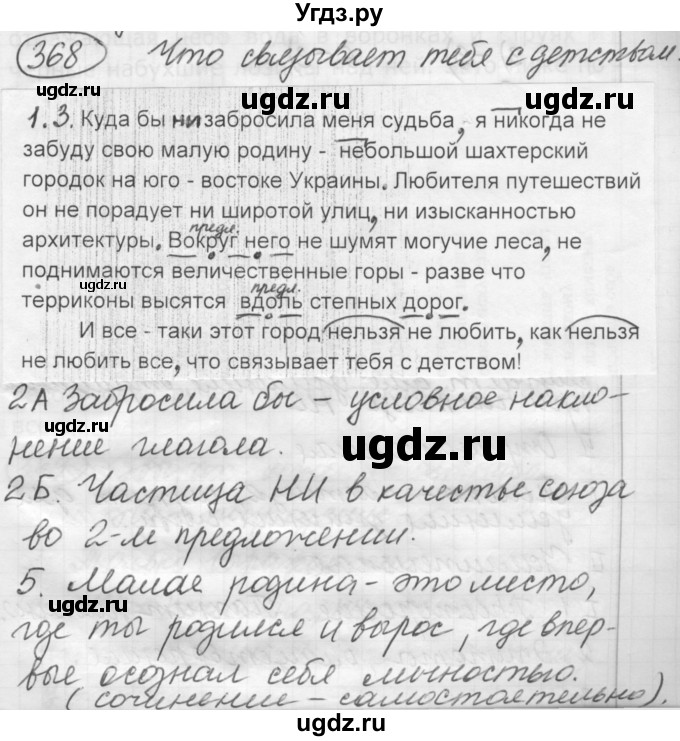 Угдз.ру
368 Что связывает тебя с детством.
1.3. Куда бы ни забросила меня судьба, я никогда не
забуду свою малую родину - небольшой шахтерский
городок на юго - востоке Украины. Любителя путешествий
он не порадует ни широтой улиц, ни изысканностью
предл.
архитектуры. Вокруг него не шумят могучие леса, не
поднимаются величественные горы - разве что
предл.
терриконы высятся вдоль степных дорог.
И все - таки этот город нельзя не любить, как нельзя
не любить все, что связывает тебя с детством!
2А Забросила бы – условное накло-
нение глагола.
2Б. Частица НИ в качестве союза
во 2-м предложении.
5. Малая родина - это место,
где ты родился и вырос, где впер-
вые осознал себя личностью.
(сочинение - самостоятельно).
угдз.ру